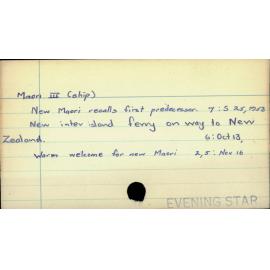 Maori III (ship)
New Maori recalls first predecessor. 7: S 25, 1953
New inter island ferry on way to New
Zealand. 6: Oct 13,
Warm welcome for new Maori 2, 5: Nov 16
EVENING STAR